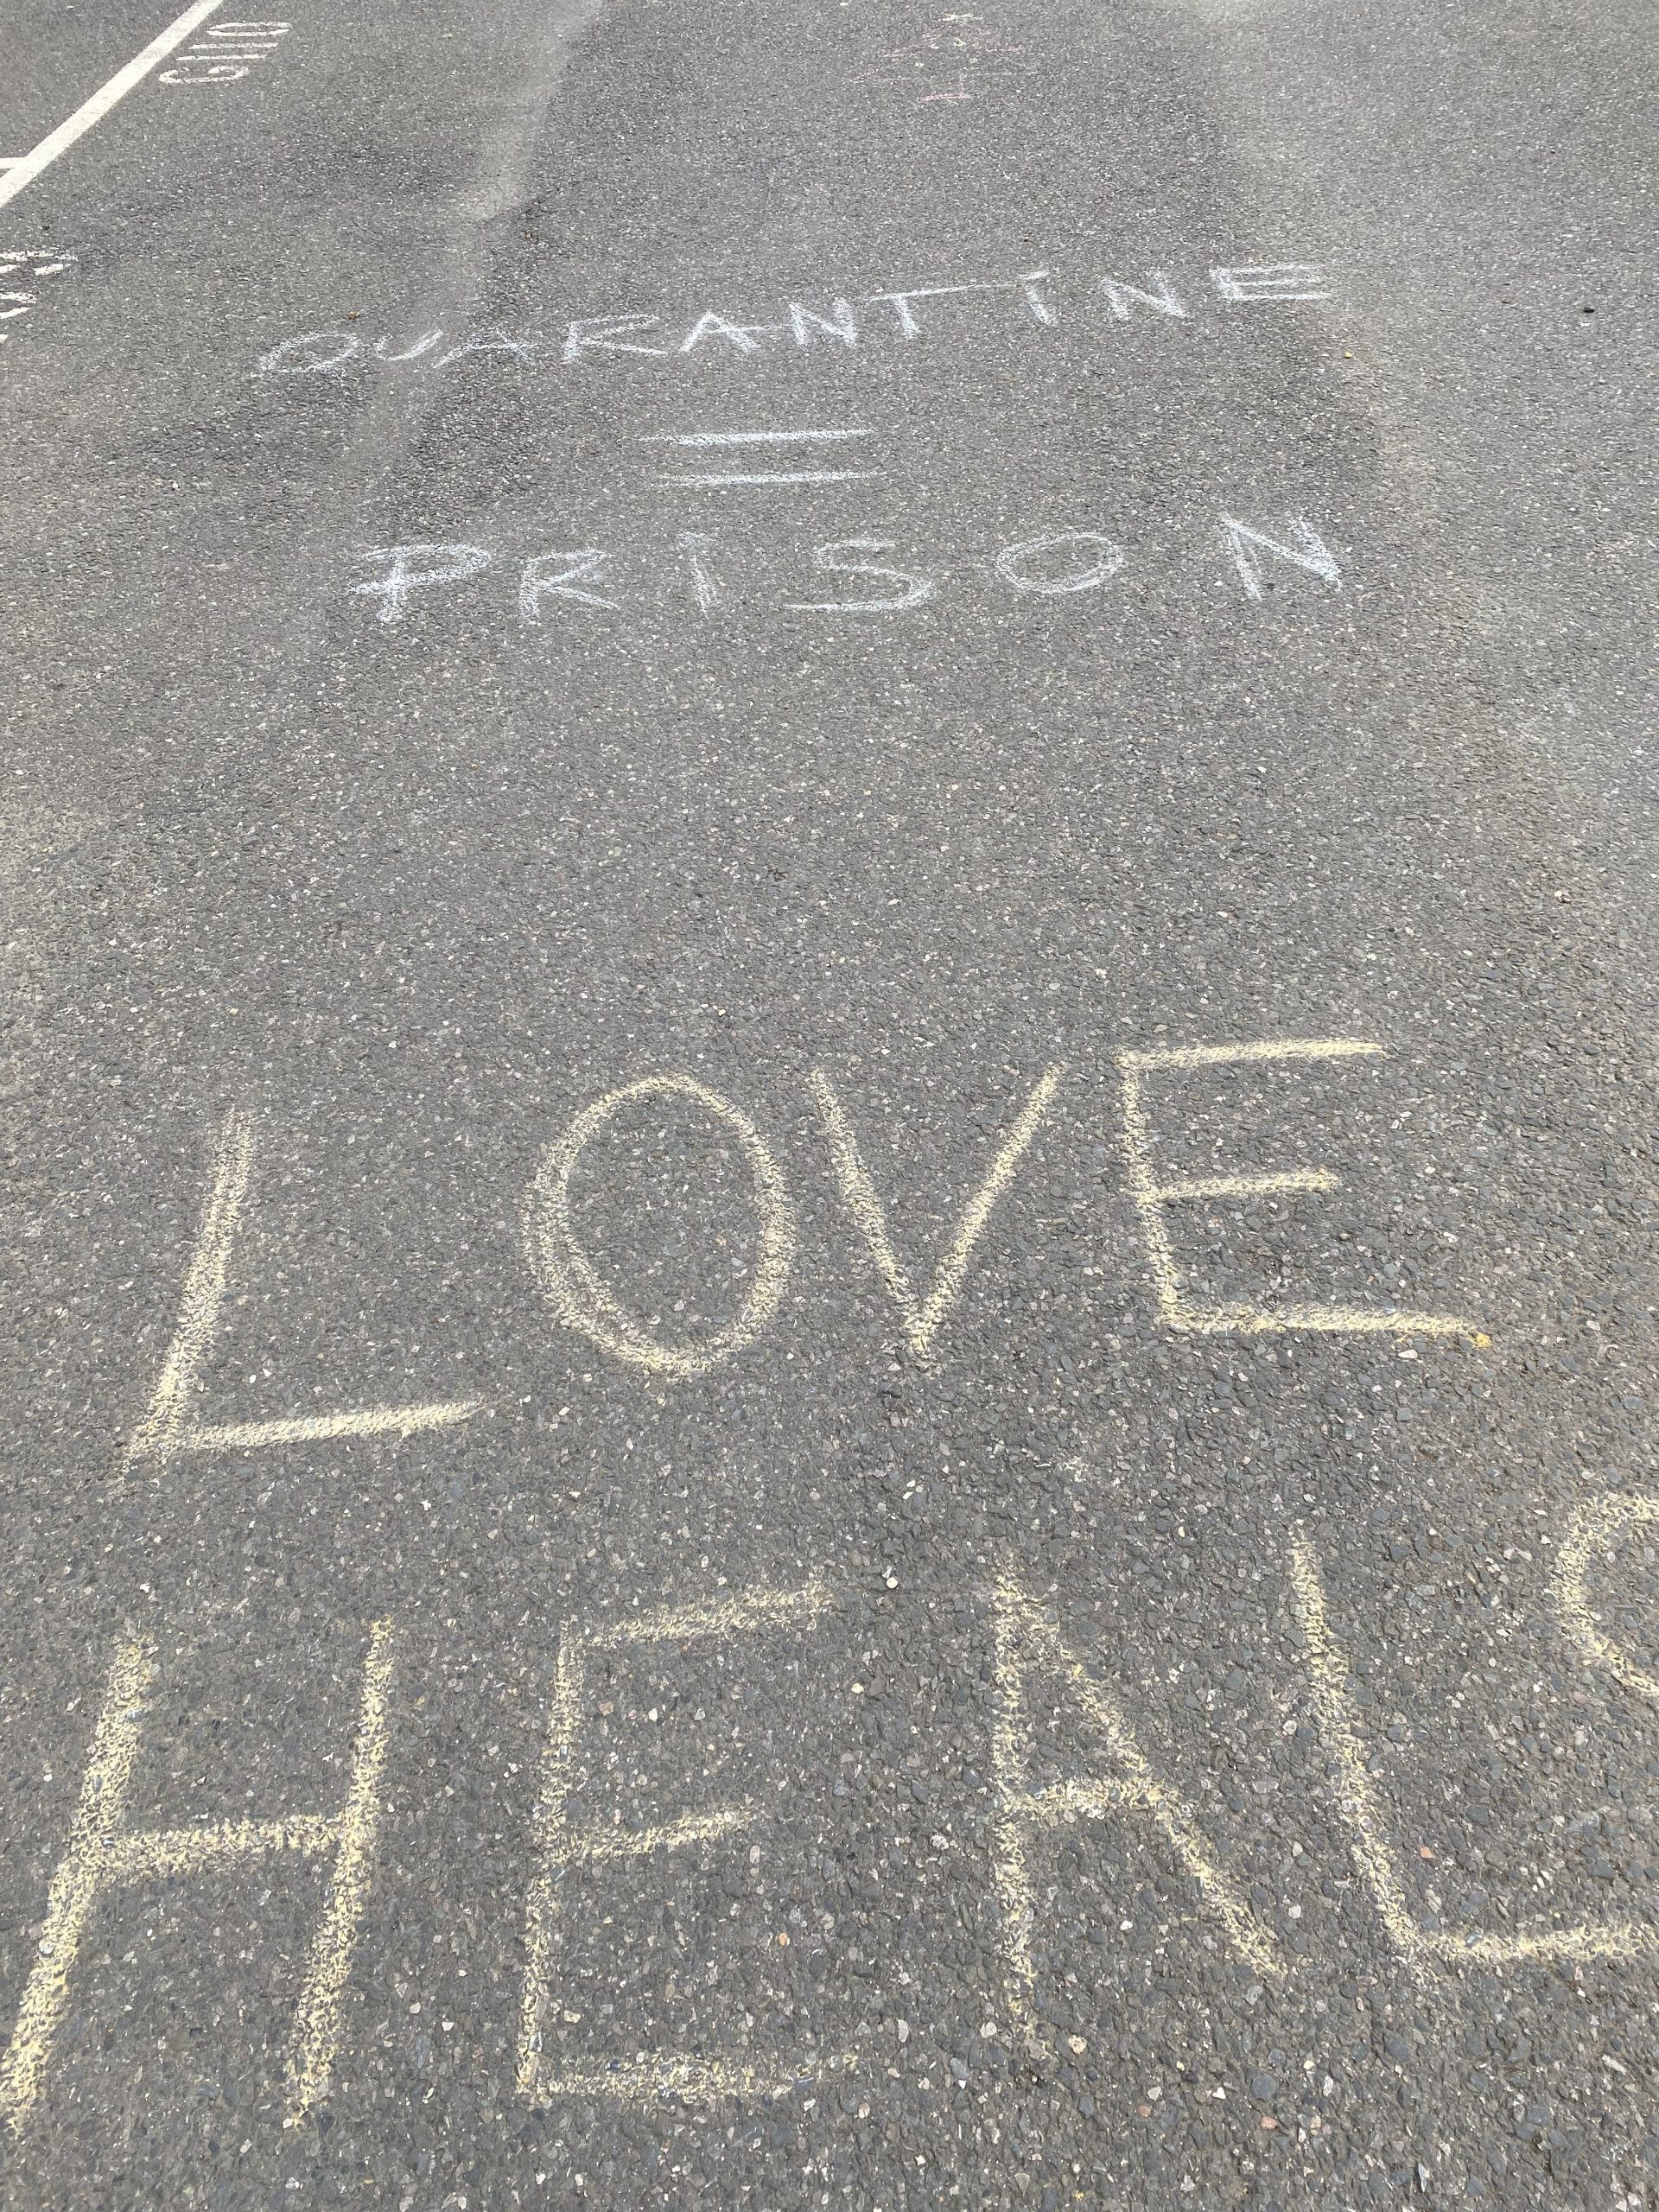 G110
QUARANTINE
=
PRISON
LOVE
HEALS